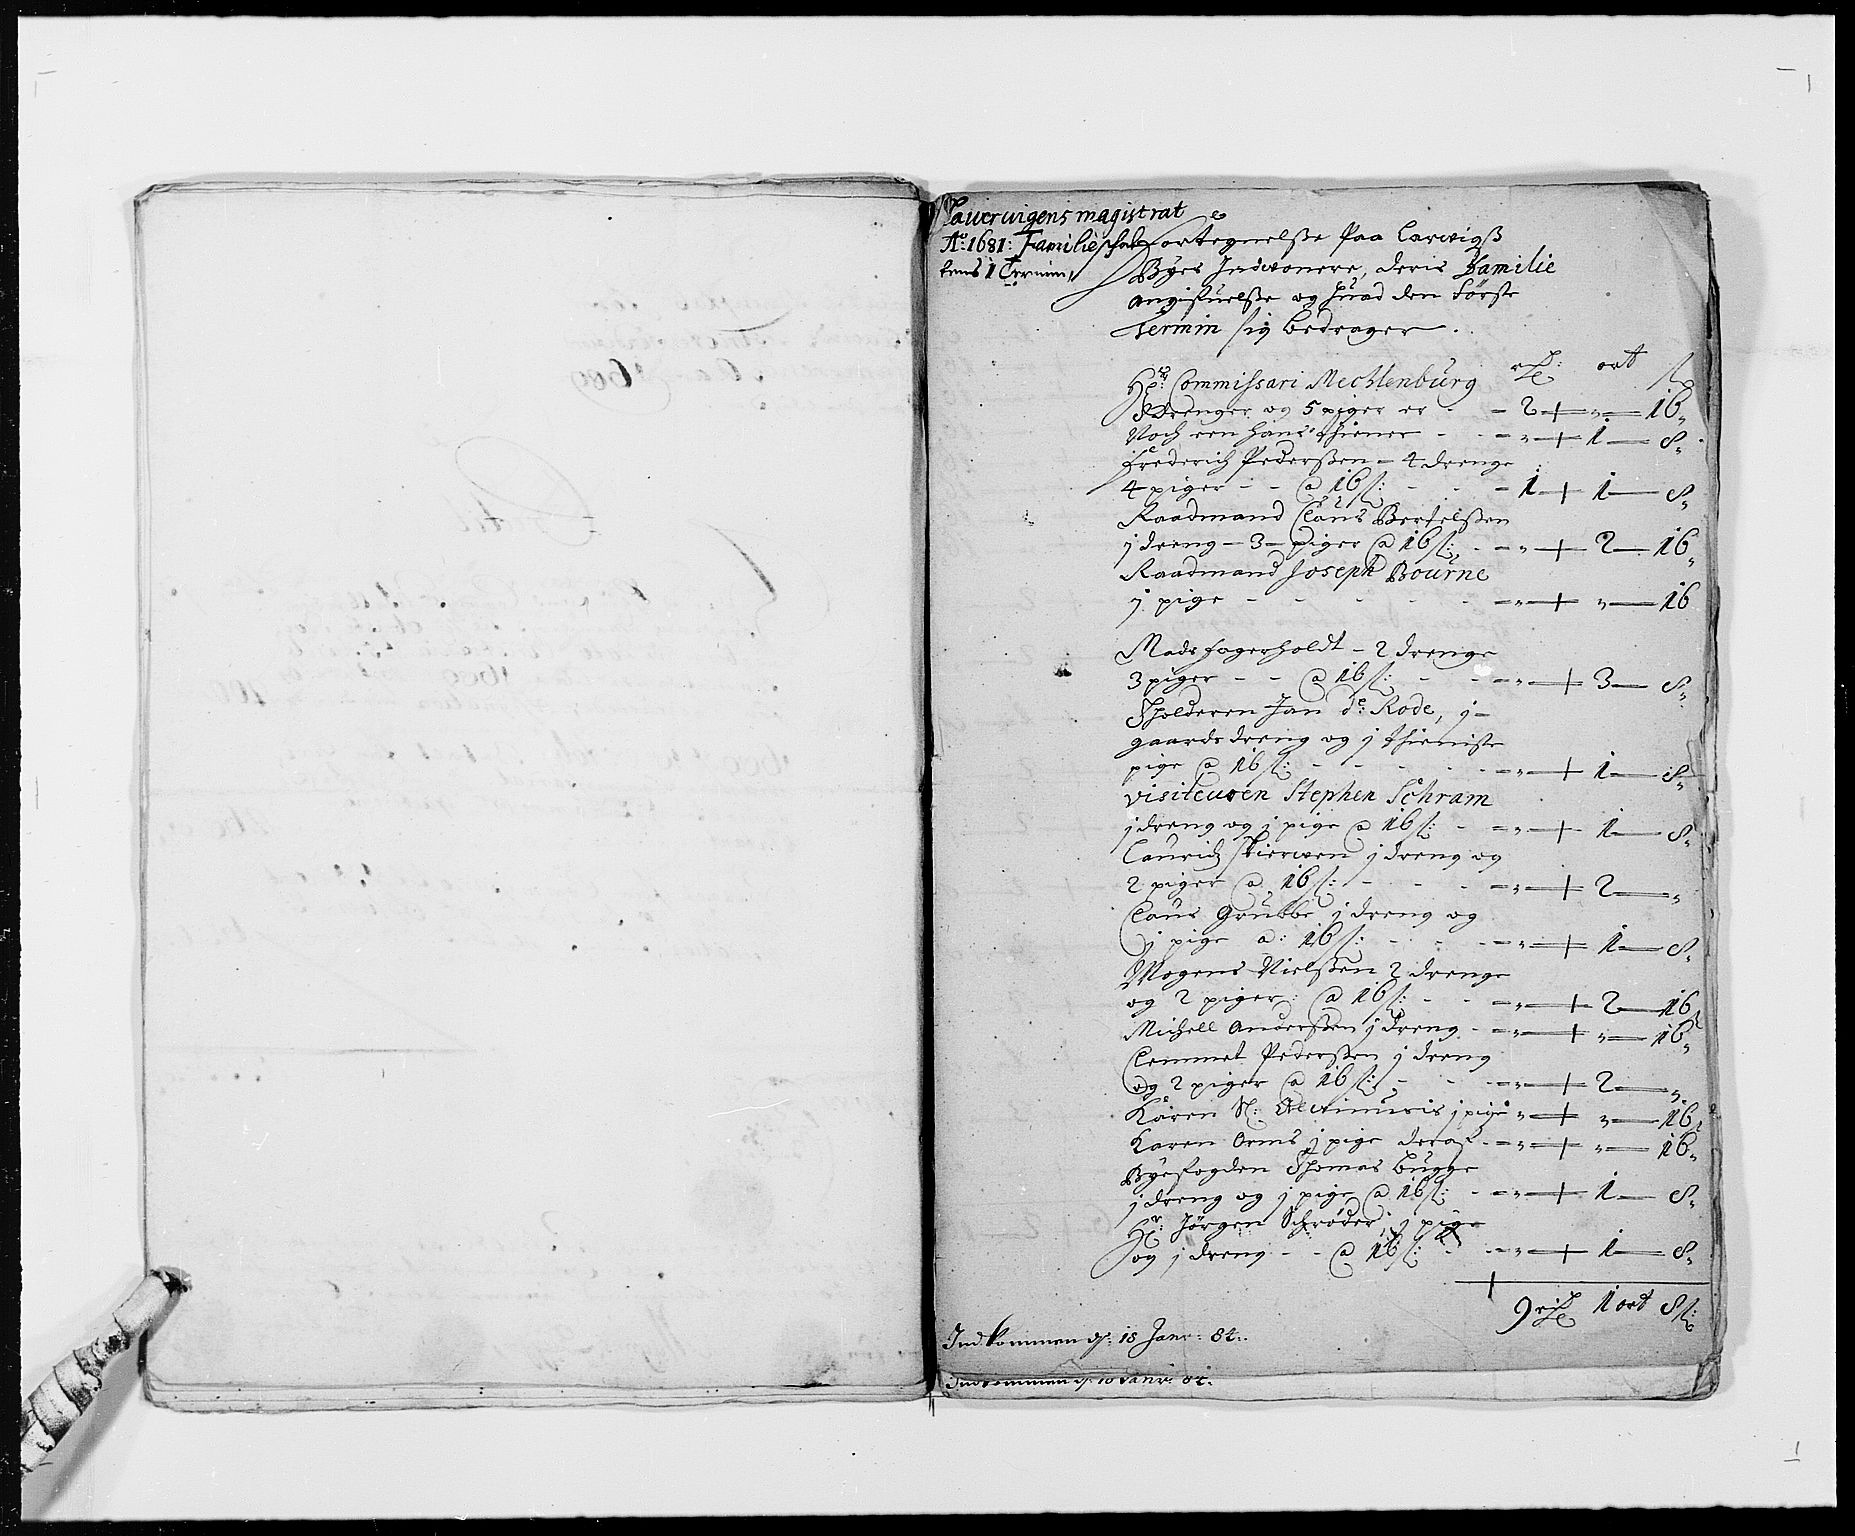 Laurvigens magistrat
Ao: 1681: Familie skat
tens 1 Termin,
Fortegnelsse Paa Larwigs
Byes Indwonere, deris Familie
angifuelsse og huad den Første
Termin sig bedrager.
rdl: ort s
Hr: Commissari Mechlenburg
drenger og 5 piger er - - 2 + „ — 16„
Noch een hans thiener - - - „ + 1 — 8„
Frederich Pedersen - 4 drenge
4 piger - - a 16 s: - - - 1 + 1 — 8„
Raadmand Claus Bertelssen
j dreng - 3 - piger a 16 s: - - „ + 2 — 16„
Raadmand Joseph Bourne
j pige - - - - - „ + „ — 16
Mads fagerholdt - 2 drenge
3 piger - - a 16 s: - - - „ + 3 — 8„
Tholderen Jan de: Rode, j -
gaards dreng og j thieniste
pige a 16 s: - - - - „ + 1 — 8„
visiteuren Stephen Schram
j dreng og j pige a 16 s: - - „ + 1 — 8„
Lauridz j dreng og
2 piger a 16 s: - - - „ + 2 — „
Claus Grubbe j dreng og
j pige a: 16 s: - - - „ + 1 — 8„
Mogens Nielssen 2 drenge
og 2 piger: a 16 s: - - - „ + 2 — 16„
Michell Anderssen j dreng - - „ + „ — 16„
Clemmet Pederssen j dreng
og 2 piger a 16 s: - - - „ + 2 — „
Karen Sl: j pige „ + „ — 16„
Karen Orms j pige - „ + „ — 16„
Byefogden Thomas Bugge
j dreng og j pige a 16 s: - - „ + 1 — 8„
Hr: Jørgen Schrøder, j pige
og j dreng - - a 16 s: - - „ + 1 — 8„
9 rdl 1 ort 8 s:
Indkommen d: 18 Janr: 84:.